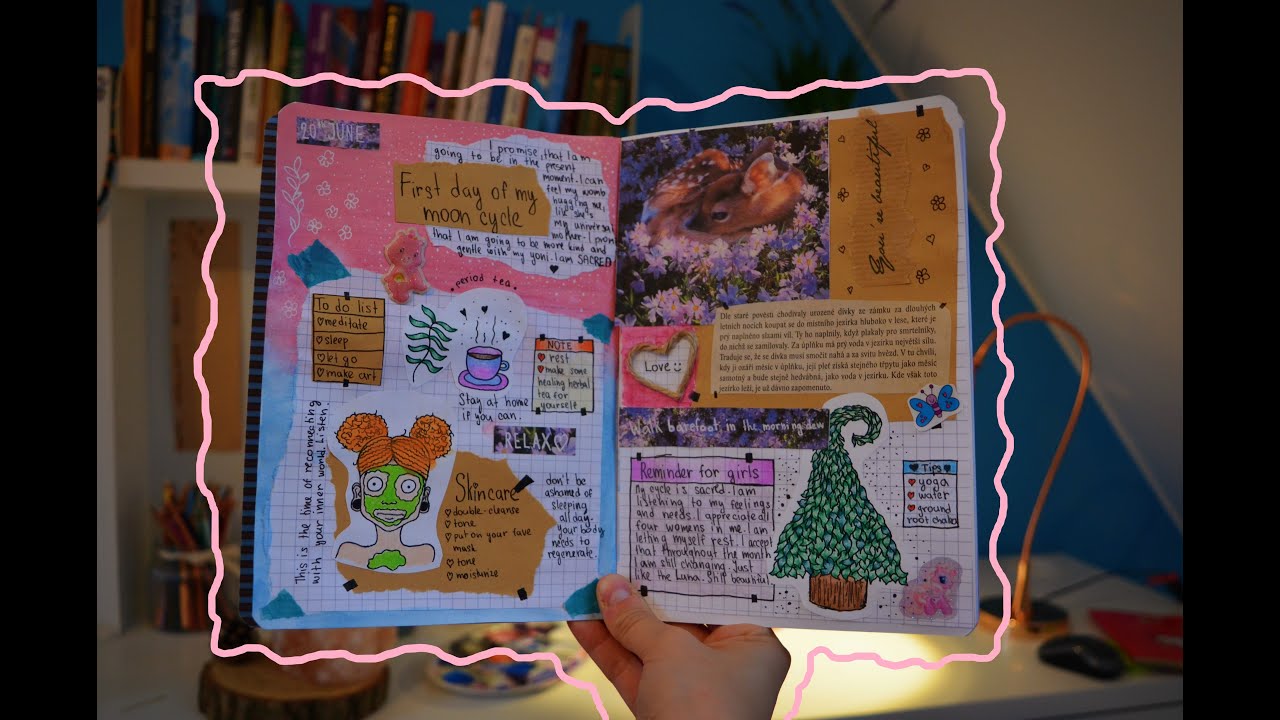 20TH JUNE
I promise, that I am
going to be in the present
moment. I can
feel my womb
hugging me,
like she's
my universal
mother. I promise
that I am going to be more kind and
gentle with my yoni. I am SACRED
First day of my
moon cycle
• period tea •
To do list
meditate
sleep
let go
make art
NOTE
rest
make some
healing herbal
tea for
yourself
Stay at home
if you can.
RELAX
This is the time of reconnecting
with your inner world. Listen
Skincare
double-cleanse
tone
put on your fave
mask
tone
moisturize
don't be
ashamed of
sleeping
all day.
your body
needs to
regenerate.
You're beautiful
Dle staré pověsti chodívaly urozené dívky ze zámku za dlouhých
letních nocích koupat se do místního jezírka hluboko v lese, které je
prý naplněno slzami víl. Ty ho naplnily, když plakaly pro smrtelníky,
do nichž se zamilovaly. Za úplňku má prý voda v jezírku největší sílu.
Traduje se, že se dívka musí smočit nahá a za svitu hvězd. V tu chvíli,
kdy ji ozáří měsíc v úplňku, její pleť získá stejného třpytu jako měsíc
samotný a bude stejně hedvábná, jako voda v jezírku. Kde však toto
jezírko leží, je už dávno zapomenuto.
Love
Walk barefoot in the morning dew
Reminder for girls
My cycle is sacred. I am
listening to my feelings
and needs. I appreciate all
four womens in me. I am
letting myself rest. I accept
that throughout the month
I am still changing. Just
like the Luna. Still beautiful
Tips
yoga
water
ground
root chakra